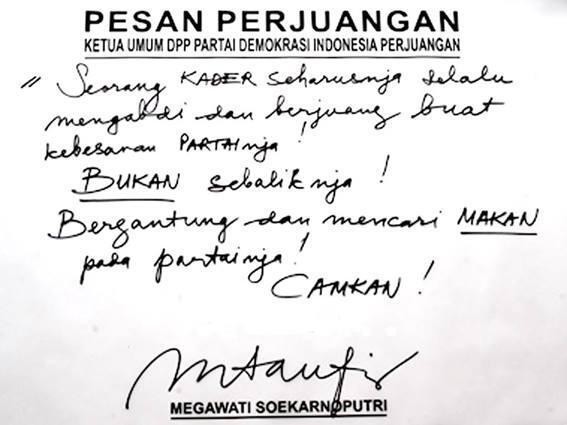 PESAN PERJUANGAN
KETUA UMUM DPP PARTAI DEMOKRASI INDONESIA PERJUANGAN
" Seorang KADER seharusnja selalu
mengabdi dan berjuang buat
kebesaran PARTAInja !
BUKAN sebaliknja !
Bergantung dan mencari MAKAN
pada partainja !
CAMKAN !
MEGAWATI SOEKARNOPUTRI